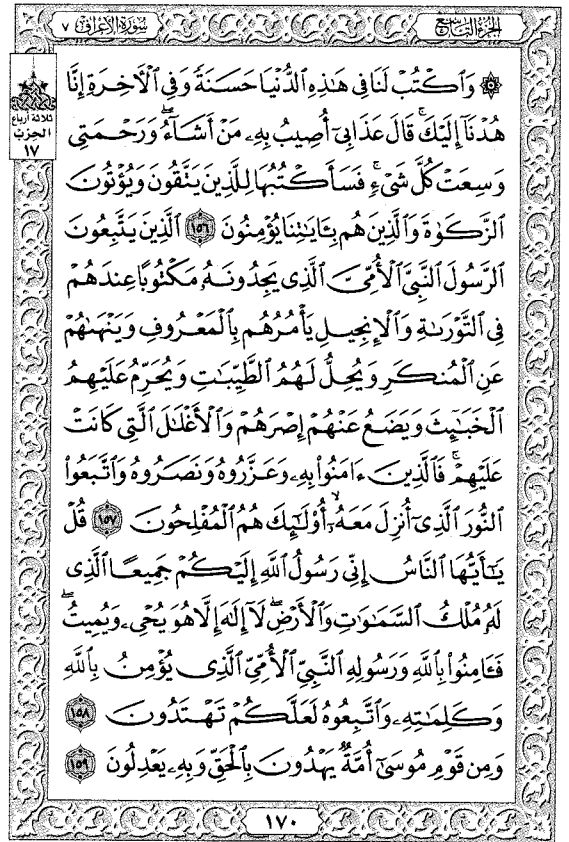 الجزء التاسع
سورة الأعراف ٧
ثلاثة أرباع
الحزب
١٧
۞ وَٱكۡتُبۡ لَنَا فِي هَٰذِهِ ٱلدُّنۡيَا حَسَنَةٗ وَفِي ٱلۡأٓخِرَةِ إِنَّا
هُدۡنَآ إِلَيۡكَۚ قَالَ عَذَابِيٓ أُصِيبُ بِهِۦ مَنۡ أَشَآءُۖ وَرَحۡمَتِي
وَسِعَتۡ كُلَّ شَيۡءٖۚ فَسَأَكۡتُبُهَا لِلَّذِينَ يَتَّقُونَ وَيُؤۡتُونَ
ٱلزَّكَوٰةَ وَٱلَّذِينَ هُم بِـَٔايَٰتِنَا يُؤۡمِنُونَ ١٥٦ ٱلَّذِينَ يَتَّبِعُونَ
ٱلرَّسُولَ ٱلنَّبِيَّ ٱلۡأُمِّيَّ ٱلَّذِي يَجِدُونَهُۥ مَكۡتُوبًا عِندَهُمۡ
فِي ٱلتَّوۡرَىٰةِ وَٱلۡإِنجِيلِ يَأۡمُرُهُم بِٱلۡمَعۡرُوفِ وَيَنۡهَىٰهُمۡ
عَنِ ٱلۡمُنكَرِ وَيُحِلُّ لَهُمُ ٱلطَّيِّبَٰتِ وَيُحَرِّمُ عَلَيۡهِمُ
ٱلۡخَبَٰٓئِثَ وَيَضَعُ عَنۡهُمۡ إِصۡرَهُمۡ وَٱلۡأَغۡلَٰلَ ٱلَّتِي كَانَتۡ
عَلَيۡهِمۡۚ فَٱلَّذِينَ ءَامَنُواْ بِهِۦ وَعَزَّرُوهُ وَنَصَرُوهُ وَٱتَّبَعُواْ
ٱلنُّورَ ٱلَّذِيٓ أُنزِلَ مَعَهُۥٓ أُوْلَٰٓئِكَ هُمُ ٱلۡمُفۡلِحُونَ ١٥٧ قُلۡ
يَٰٓأَيُّهَا ٱلنَّاسُ إِنِّي رَسُولُ ٱللَّهِ إِلَيۡكُمۡ جَمِيعًا ٱلَّذِي
لَهُۥ مُلۡكُ ٱلسَّمَٰوَٰتِ وَٱلۡأَرۡضِۖ لَآ إِلَٰهَ إِلَّا هُوَ يُحۡيِۦ وَيُمِيتُۖ
فَـَٔامِنُواْ بِٱللَّهِ وَرَسُولِهِ ٱلنَّبِيِّ ٱلۡأُمِّيِّ ٱلَّذِي يُؤۡمِنُ بِٱللَّهِ
وَكَلِمَٰتِهِۦ وَٱتَّبِعُوهُ لَعَلَّكُمۡ تَهۡتَدُونَ ١٥٨
وَمِن قَوۡمِ مُوسَىٰٓ أُمَّةٞ يَهۡدُونَ بِٱلۡحَقِّ وَبِهِۦ يَعۡدِلُونَ ١٥٩
١٧٠